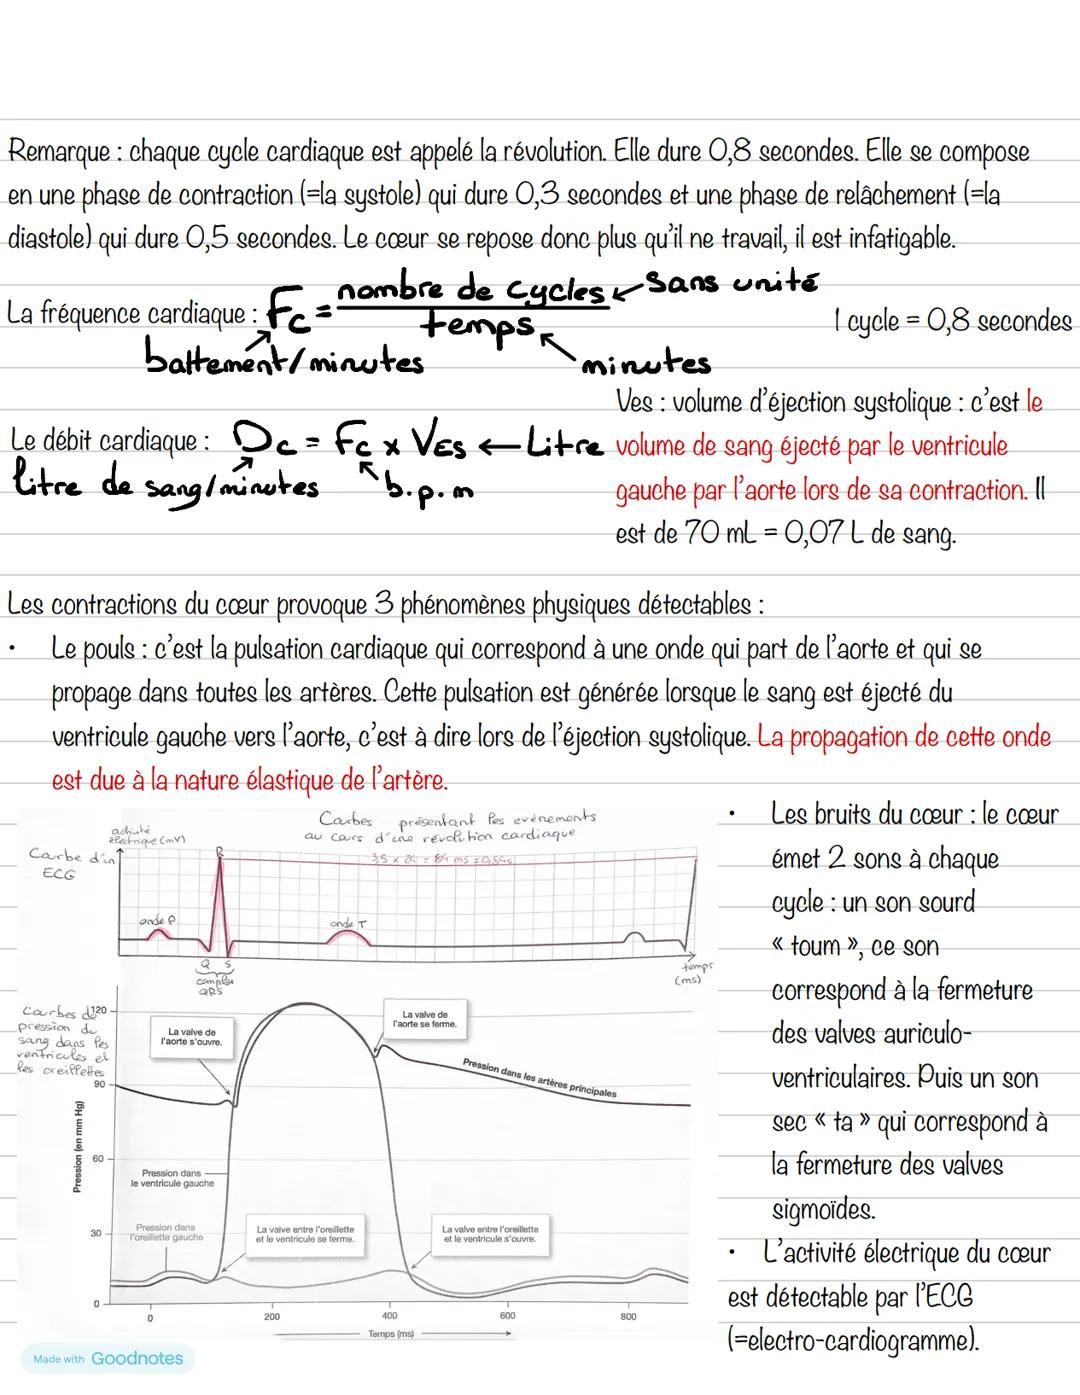 Remarque : chaque cycle cardiaque est appelé la révolution. Elle dure 0,8 secondes. Elle se compose
en une phase de contraction (=la systole) qui dure 0,3 secondes et une phase de relâchement (=la
diastole) qui dure 0,5 secondes. Le cœur se repose donc plus qu'il ne travail, il est infatigable.
La fréquence cardiaque : Fc = nombre de cycles ← sans unité
temps
1 cycle = 0,8 secondes
battement/minutes
minutes
Ves : volume d'éjection systolique : c'est le
volume de sang éjecté par le ventricule
gauche par l'aorte lors de sa contraction. Il
est de 70 mL = 0,07 L de sang.
Le débit cardiaque : Dc = Fc x VES ← Litre
litre de sang/minutes
b.p.m
Les contractions du cœur provoque 3 phénomènes physiques détectables :
• Le pouls : c'est la pulsation cardiaque qui correspond à une onde qui part de l'aorte et qui se
propage dans toutes les artères. Cette pulsation est générée lorsque le sang est éjecté du
ventricule gauche vers l'aorte, c'est à dire lors de l'éjection systolique. La propagation de cette onde
est due à la nature élastique de l'artère.
• Les bruits du cœur : le cœur
émet 2 sons à chaque
cycle : un son sourd
« toum », ce son
correspond à la fermeture
des valves auriculo-
ventriculaires. Puis un son
sec « ta » qui correspond à
la fermeture des valves
sigmoïdes.
• L'activité électrique du cœur
est détectable par l'ECG
(=electro-cardiogramme).
Courbes présentant les evènements
au cours d'une révolution cardiaque
activité
électrique (mV)
Courbe d'un
ECG
R
onde P
onde T
Q S
complexe
QRS
temps
(ms)
Courbes de
pression du
sang dans les
ventricules et
les oreillettes
Pression (en mm Hg)
120
90
60
30
0
La valve de
l'aorte s'ouvre.
La valve de
l'aorte se ferme.
Pression dans les artères principales
Pression dans
le ventricule gauche
Pression dans
l'oreillette gauche
La valve entre l'oreillette
et le ventricule se ferme.
La valve entre l'oreillette
et le ventricule s'ouvre.
0 200 400 600 800
Temps (ms)
Made with Goodnotes